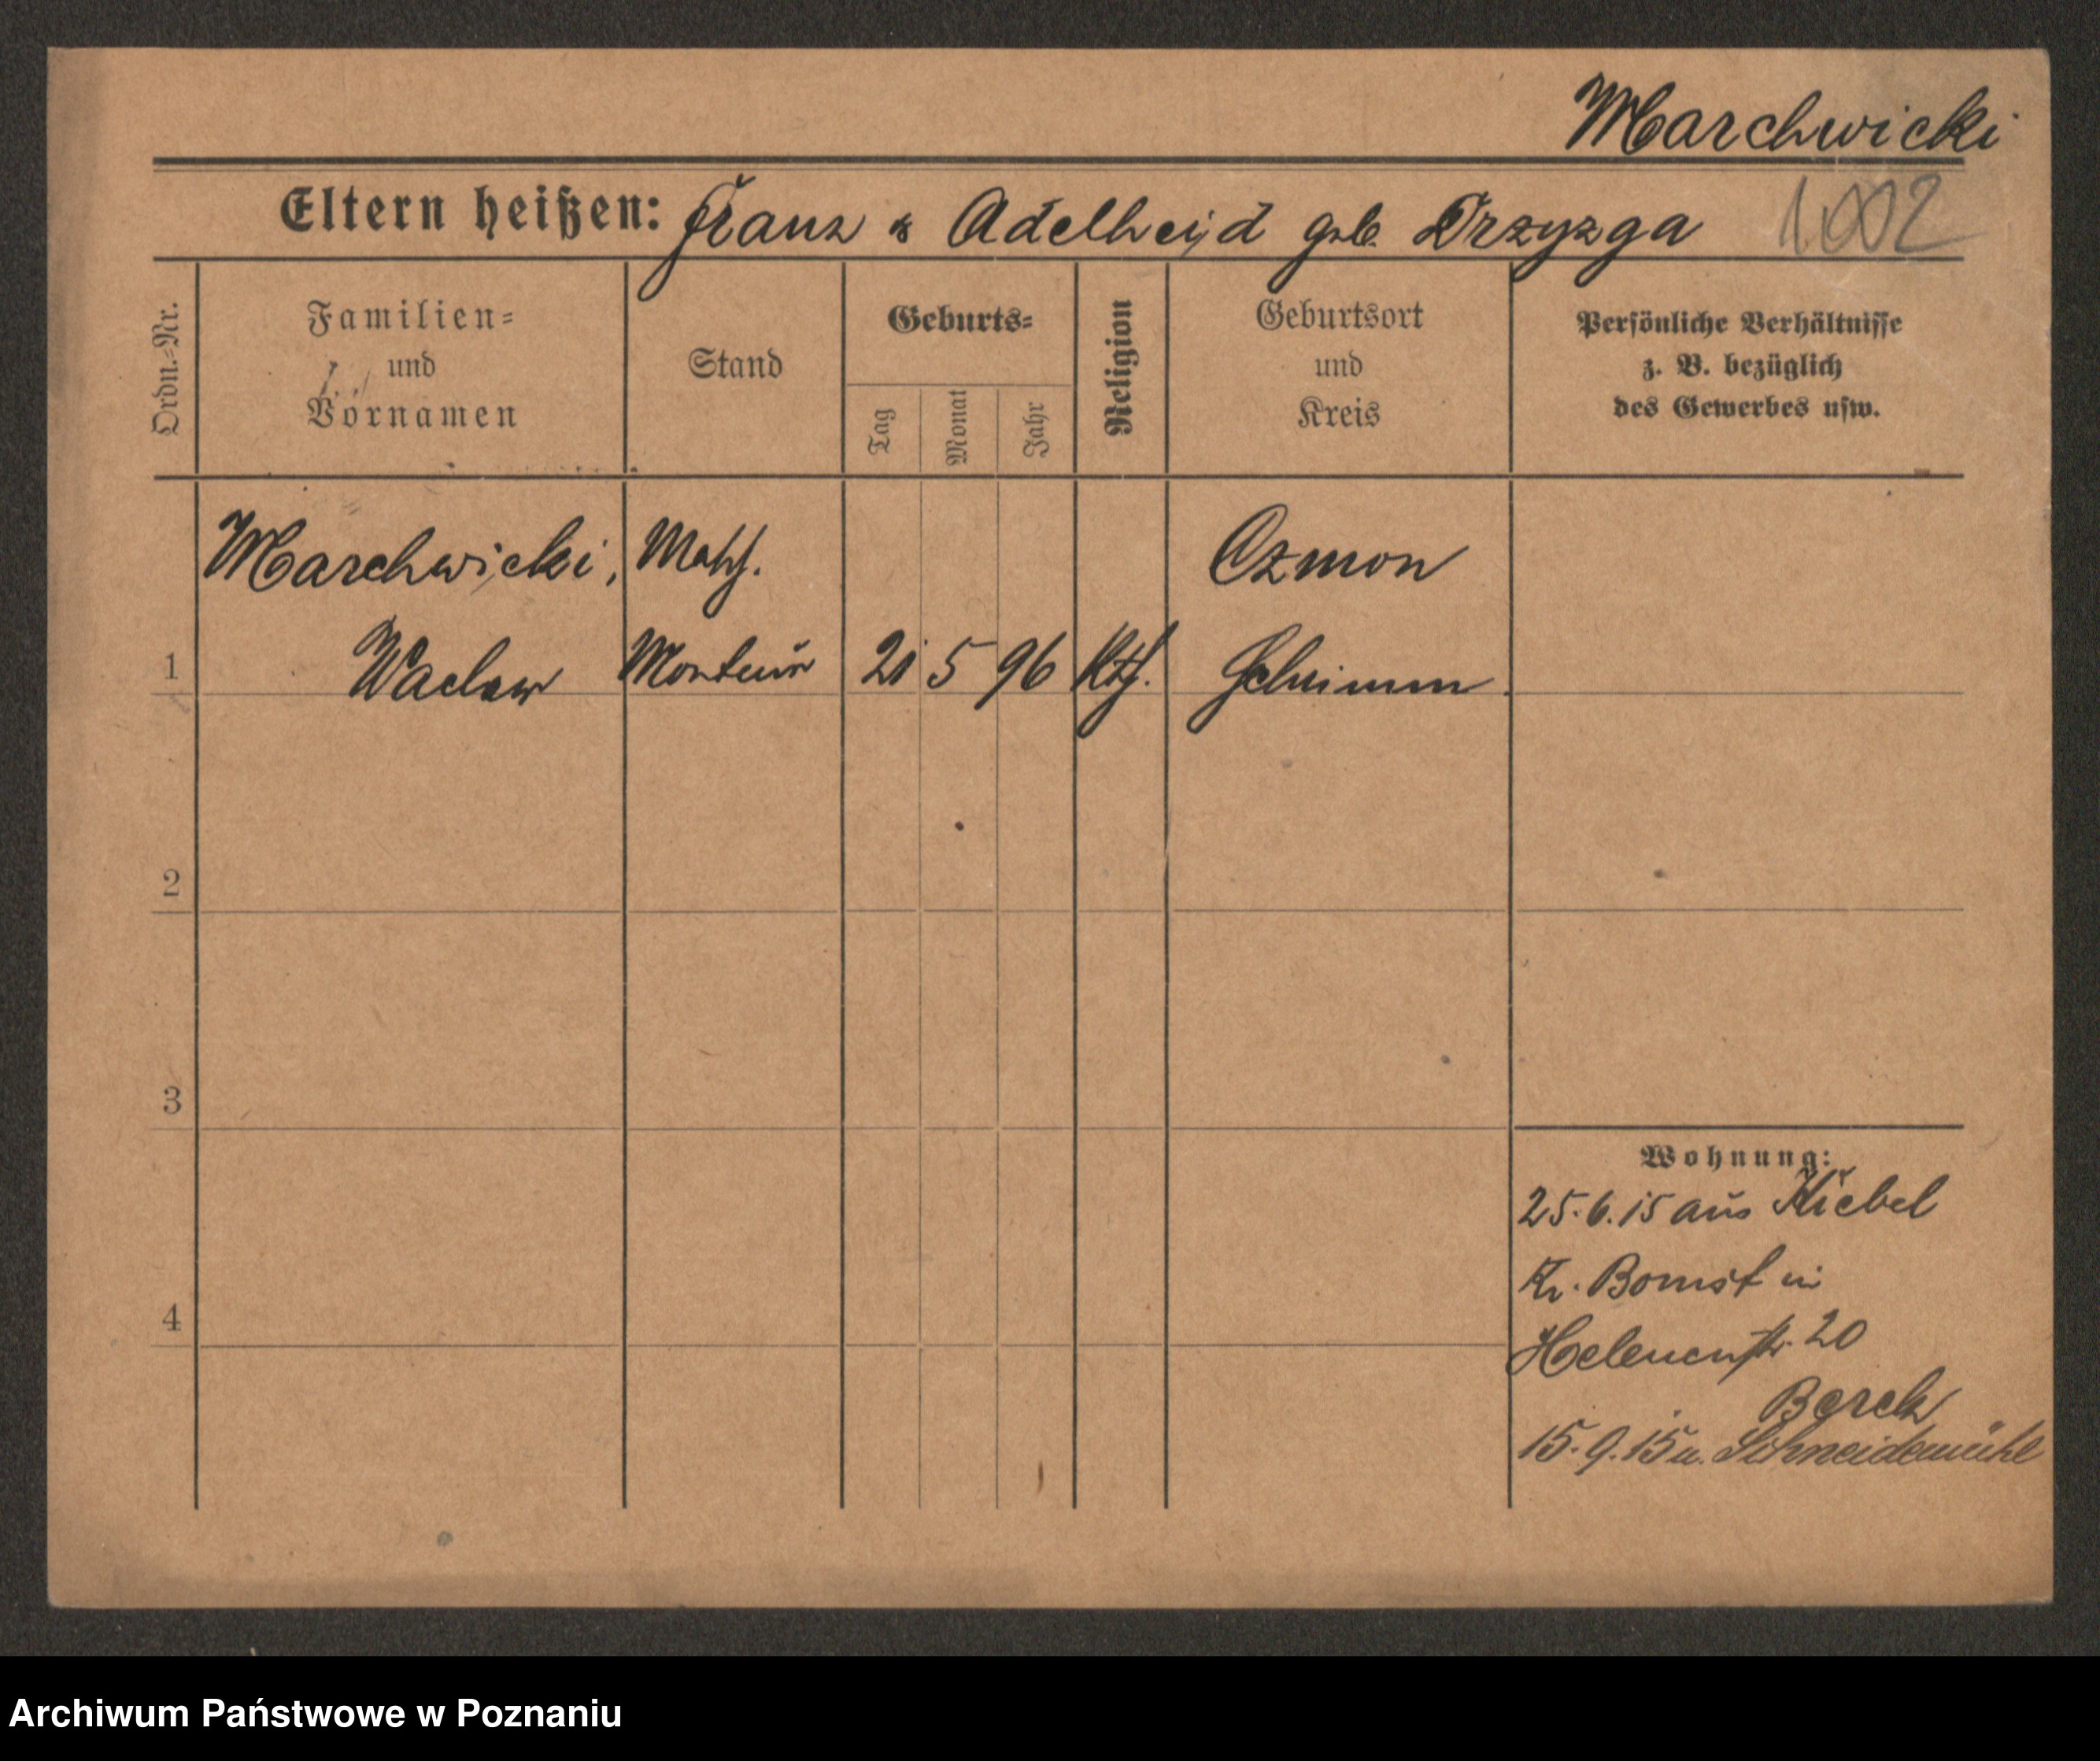 Marchwicki
Eltern heißen: Franz & Adelheid geb. Przyzga 1002
Ordn.=Nr.
Familien=
und
Vornamen
Stand
Geburts=
Tag
Monat
Jahr
Religion
Geburtsort
und
Kreis
Persönliche Verhältnisse
z. B. bezüglich
des Gewerbes usw.
Marchwicki,
Czmon
1 Waclaw Monteur 21 5 96 Kth. Schrimm
2
3
4
Wohnung:
25.6.15 aus Kiebel
Kr. Bomst in
Helenenstr. 20
Borek
15.9.15 n. Schneidemühl
Archiwum Państwowe w Poznaniu